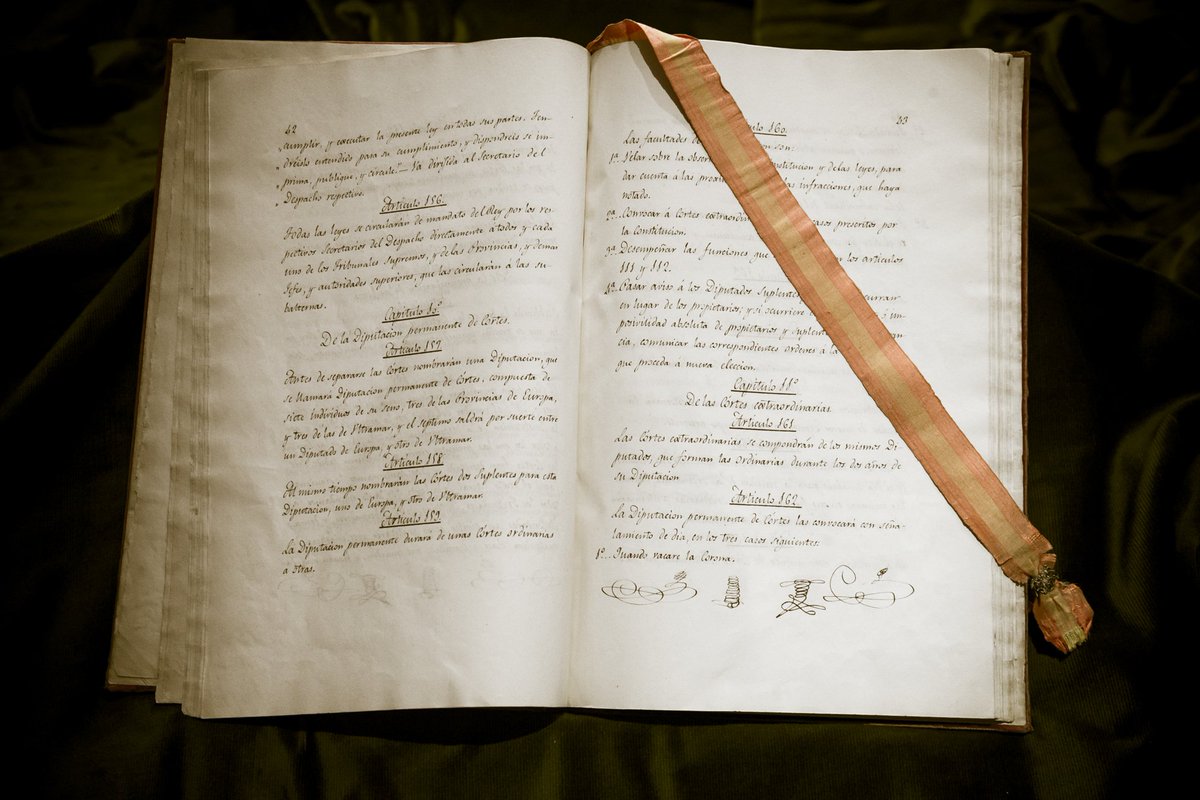 42
„cumplir, y executar la presente ley en todas sus partes. Ten-
„dreislo entendido para su cumplimiento, y dispondreis se im-
„prima, publique, y circule." — Va dirigida al Secretario del
„Despacho respectivo.
Artículo 156.
Todas las leyes se circularán de mandato del Rey por los res-
pectivos Secretarios del Despacho directamente á todos y cada
uno de los Tribunales supremos, y de las Provincias, y demas
Jefes, y autoridades superiores, que las circularán á las su-
balternas.
Capítulo 10º
De la Diputacion permanente de Córtes.
Artículo 157
Antes de separarse las Córtes nombrarán una Diputacion, que
se llamará Diputacion permanente de Córtes, compuesta de
siete individuos de su seno, tres de las Provincias de Europa,
y tres de las de Ultramar, y el septimo saldrá por suerte entre
un Diputado de Europa, y otro de Ultramar.
Artículo 158
Al mismo tiempo nombrarán las Córtes dos Suplentes para esta
Diputacion, uno de Europa, y otro de Ultramar.
Artículo 159
La Diputacion permanente durará de unas Córtes ordinarias
á otras.
43
ulo 160.
Las facultades de on son:
1ª Velar sobre la obser nstitucion y de las leyes, para
dar cuenta a las proxi las infracciones, que haya
notado.
2ª Convocar á Córtes extraordin casos prescritos por
la Constitucion.
3ª Desempeñar las funciones que en los artículos
111 y 112.
4ª Pasar aviso á los Diputados Suplente curran
en lugar de los propietarios; y si ocurriere ó im-
posivilidad absoluta de propietarios y suplent
cia, comunicar las correspondientes ordenes á la
que proceda á nueva eleccion.
Capítulo 11º
De las Córtes extraordinarias
Artículo 161
Las Córtes extraordinarias se compondrán de los mismos Di-
putados, que forman las ordinarias durante los dos años de
su Diputacion
Artículo 162
La Diputacion permanente de Córtes las convocará con seña-
lamiento de dia, en los tres casos siguientes:
1º Quando vacare la Corona.